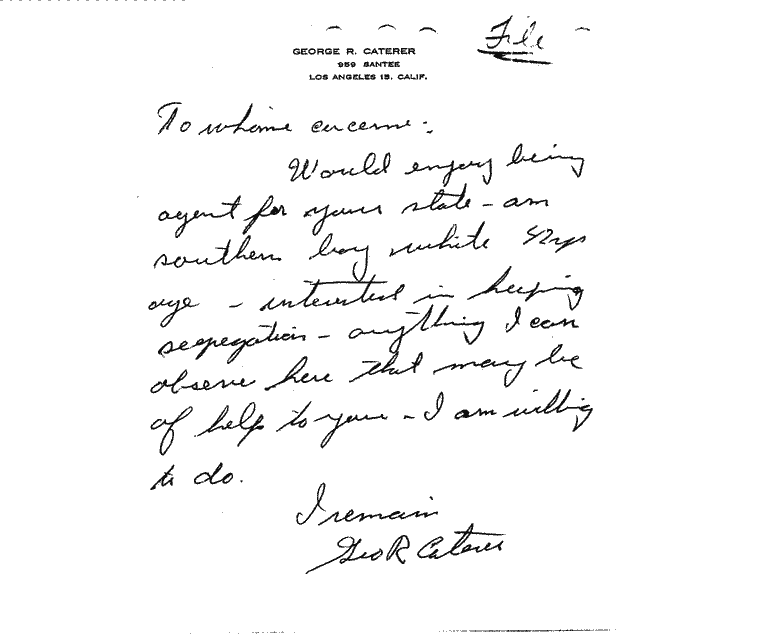 File
GEORGE R. CATERER
959 SANTEE
LOS ANGELES 15, CALIF.
To whome concerne:
Would enjoy being
agent for your state - am
southern boy white 52 yrs
age - interested in keeping
segregation - anything I can
observe here that may be
of help to you - I am willing
to do.
I remain
Geo R Caterer